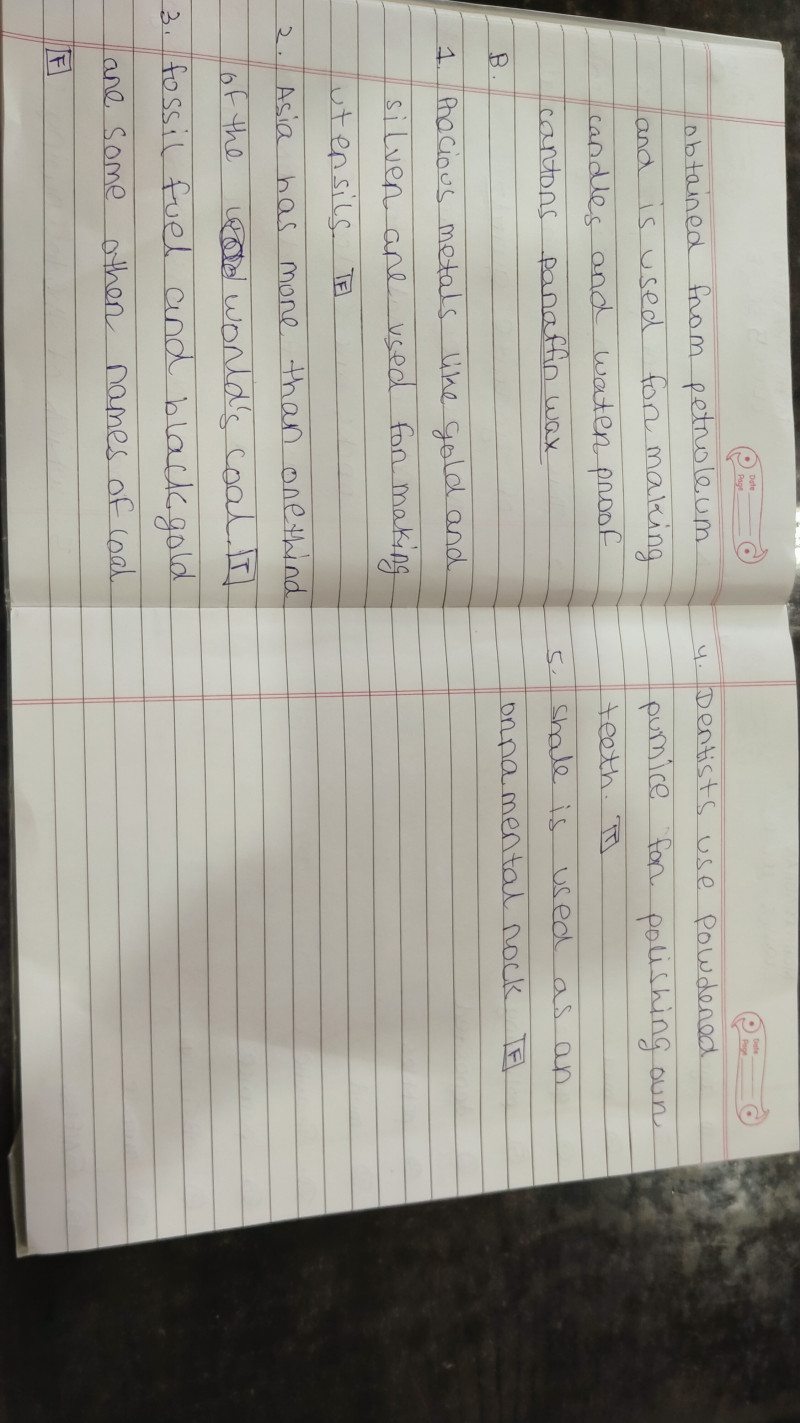 Date
Page
obtained from petroleum
and is used for making
candles and water proof
cartons paraffin wax
B.
1. Precious metals like gold and
silver are used for making
utensils. F
2. Asia has more than one third
of the world's coal. T
3. fossil fuel and black gold
are some other names of coal
F
Date
Page
4. Dentists use powdered
pumice for polishing our
teeth. T
5. Shale is used as an
ornamental rock F